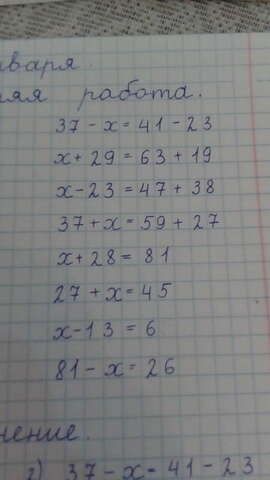 варя.
яя работа.
37 - x = 41 - 23
x + 29 = 63 + 19
x - 23 = 47 + 38
37 + x = 59 + 27
x + 28 = 81
27 + x = 45
x - 13 = 6
81 - x = 26
нение.
2) 37 - x = 41 - 23